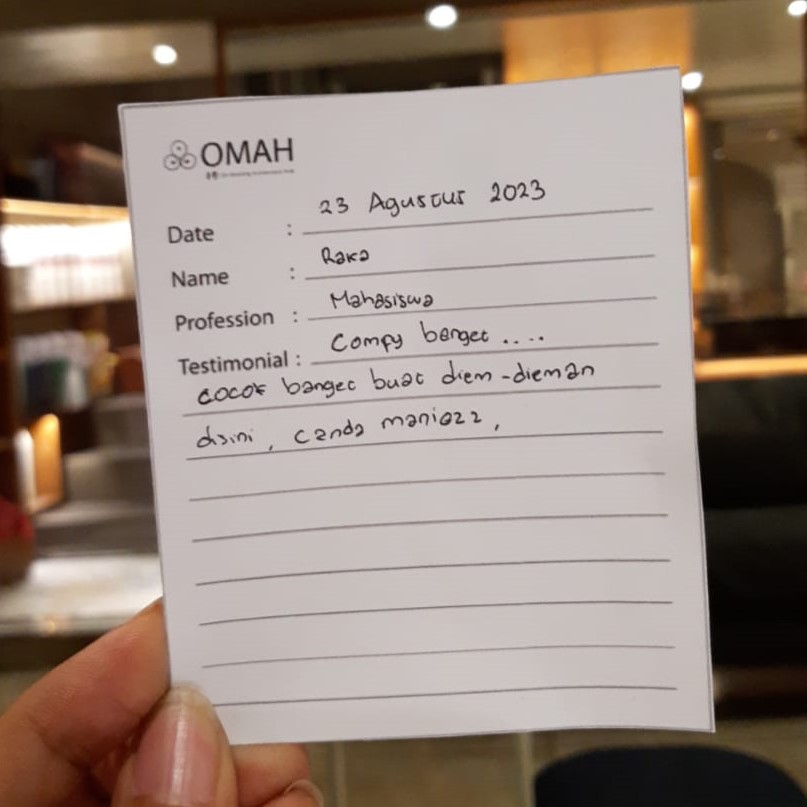 OMAH
Date : 23 Agustus 2023
Name : Raka
Profession : Mahasiswa
Testimonial : Compy banget ....
cocok banget buat diem-dieman
disini, canda maniezz,